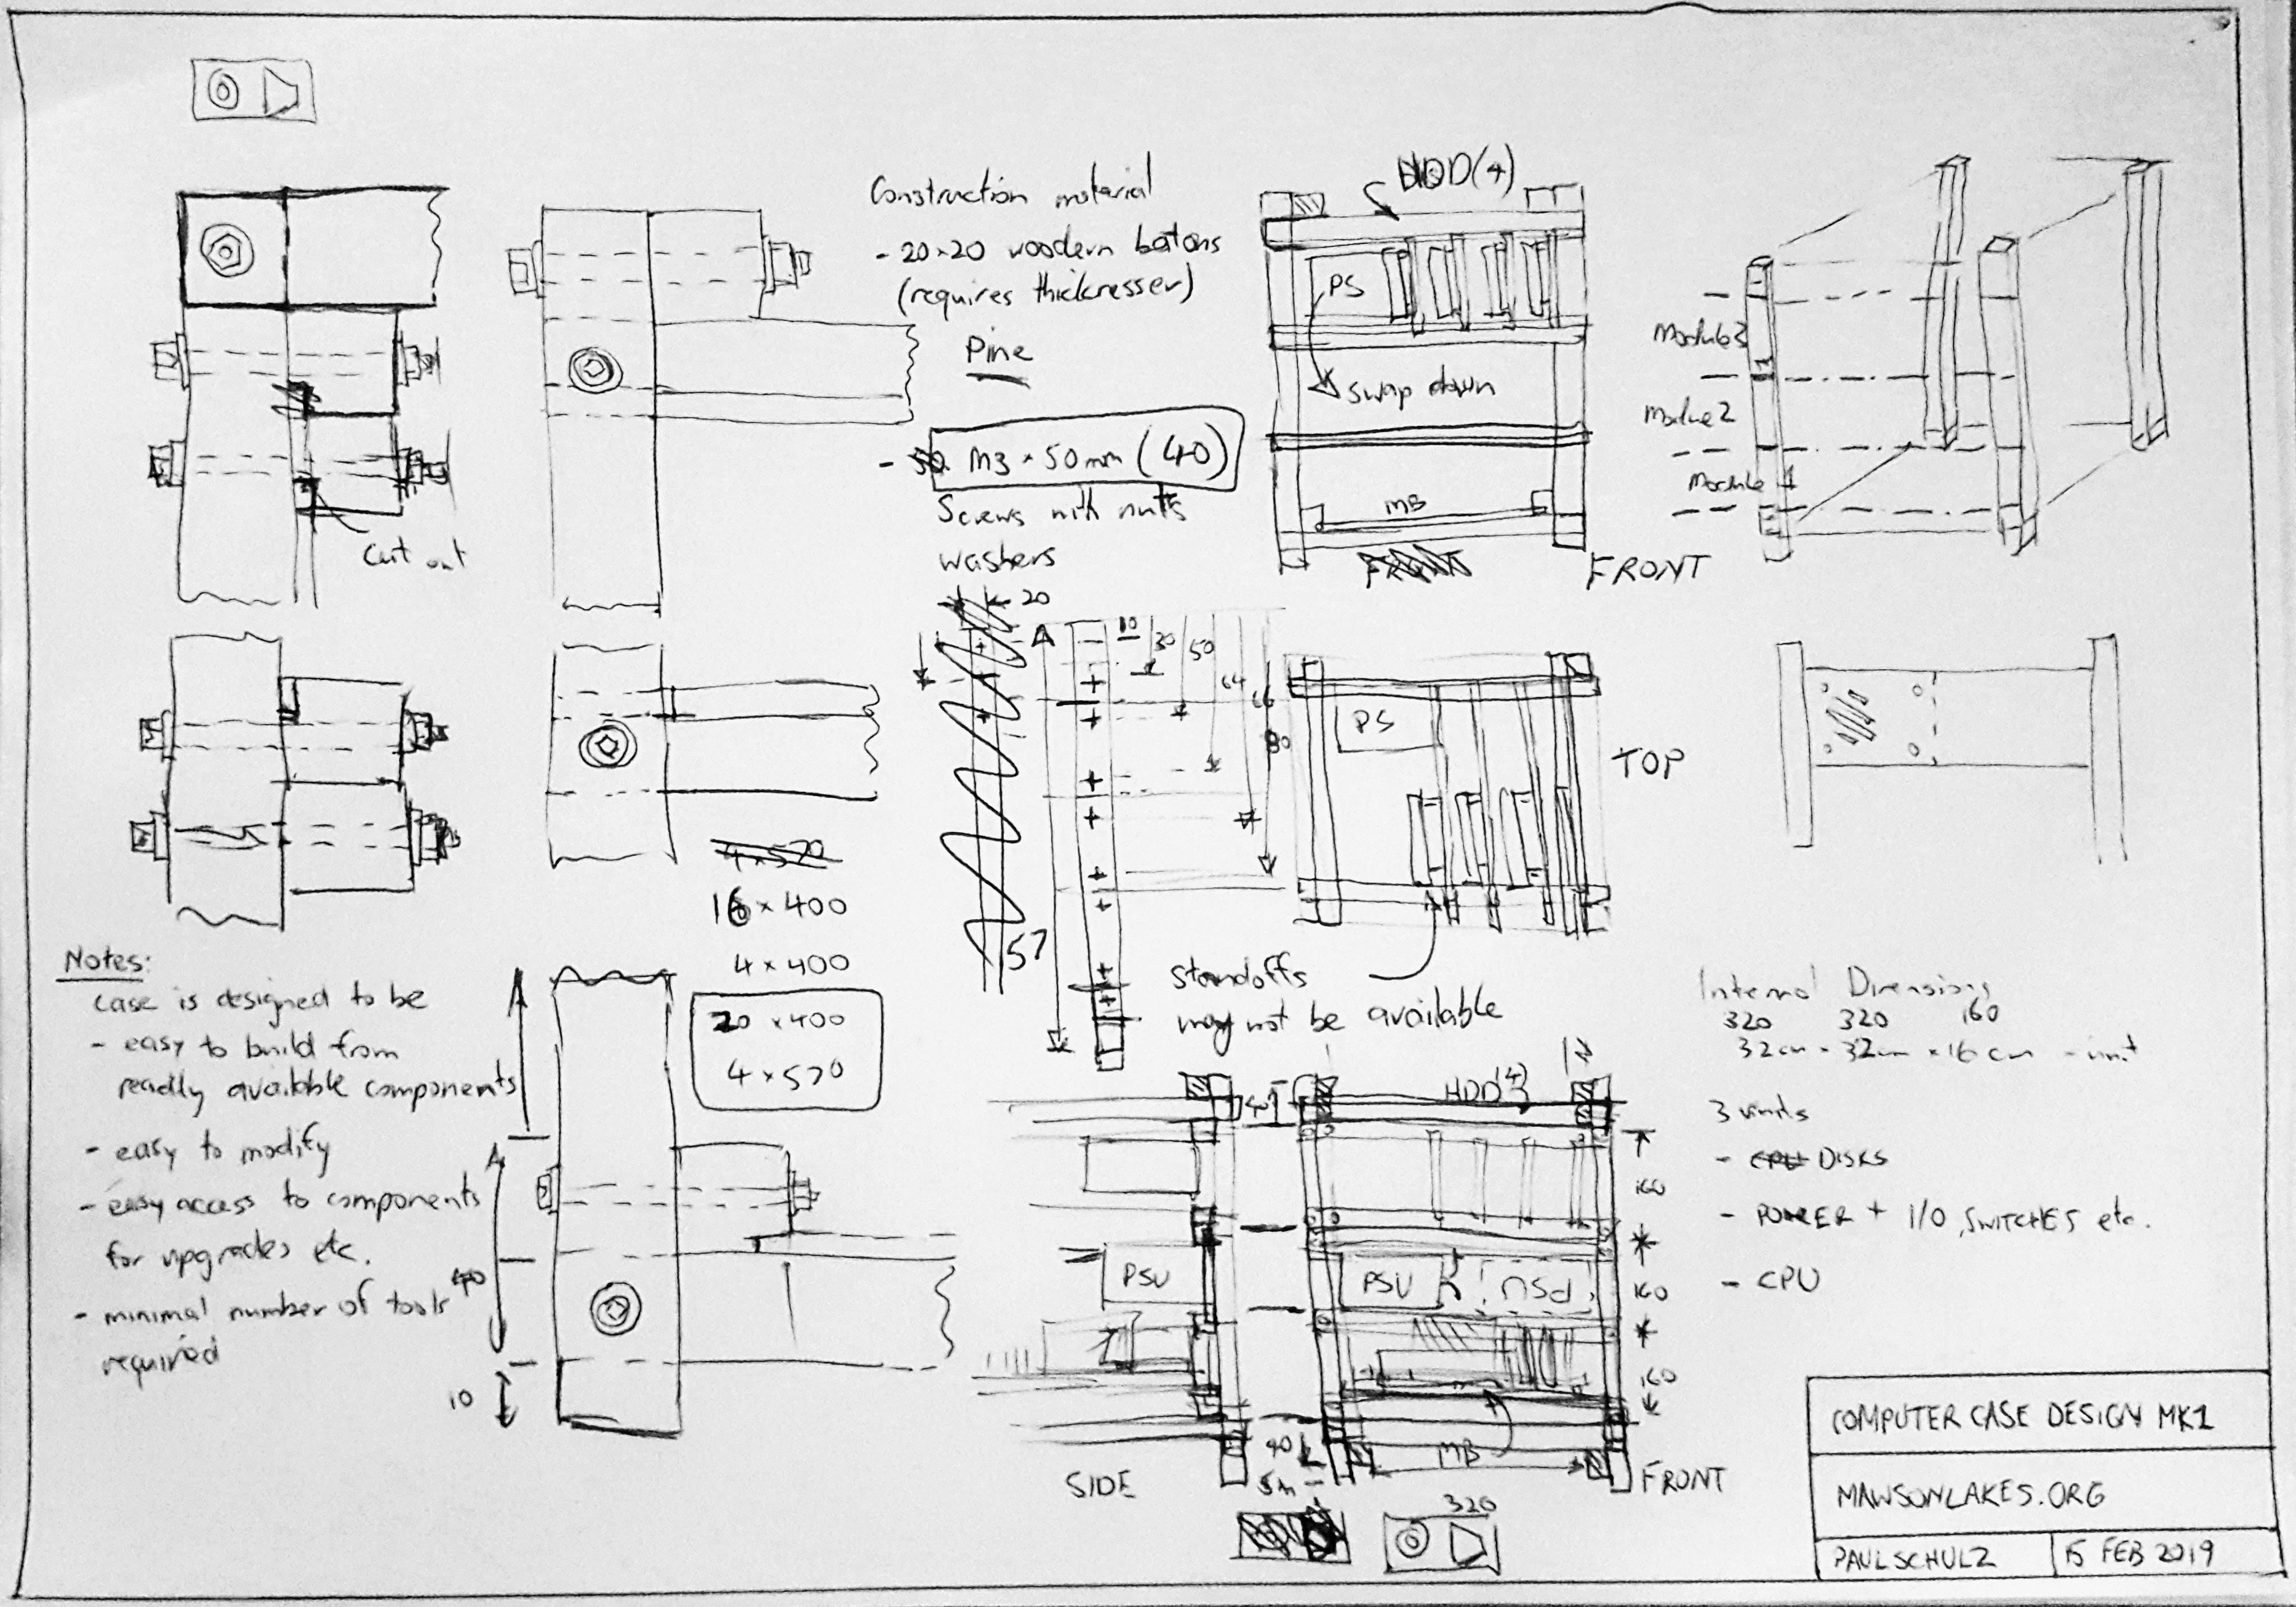 Construction material
- 20×20 woodern batons
(requires thicknesser)
Pine
- 50. M3 × 50mm (40)
Screws with nuts
washers
Cut out
HDD(4)
PS
swap down
MB
FRONT
FRONT
Module 3
Module 2
Module 1
20
10
30
50
64
66
80
57
PS
TOP
standoffs
may not be available
4×570
16 × 400
4 × 400
20 × 400
4 × 570
Notes:
case is designed to be
- easy to build from
readily available components
- easy to modify
- easy access to components
for upgrades etc.
- minimal number of tools
required
40
10
Internal Dimensions
320 320 160
32cm × 32cm × 16cm - unit
3 units
- CPU DISKS
- POWER + I/O, SWITCHES etc.
- CPU
40
HDD(4)
160
PSU
PSU
PSU
160
160
40
MB
SIDE
FRONT
320
COMPUTER CASE DESIGN MK1
MAWSONLAKES.ORG
PAUL SCHULZ
15 FEB 2019